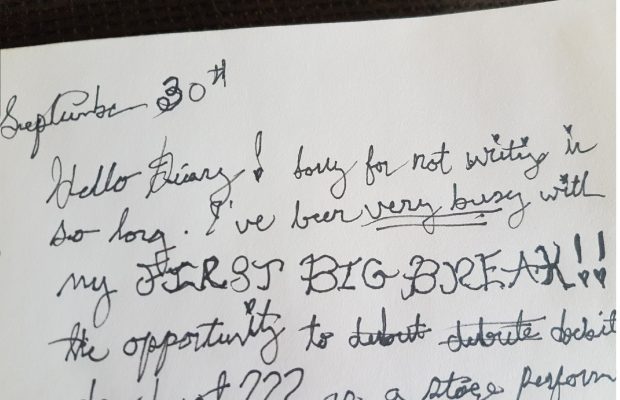 September 30th
Hello Diary! Sorry for not writing in
so long. I've been very busy with
my FIRST BIG BREAK!!
the opportunity to debut debute
??? as a stage perform